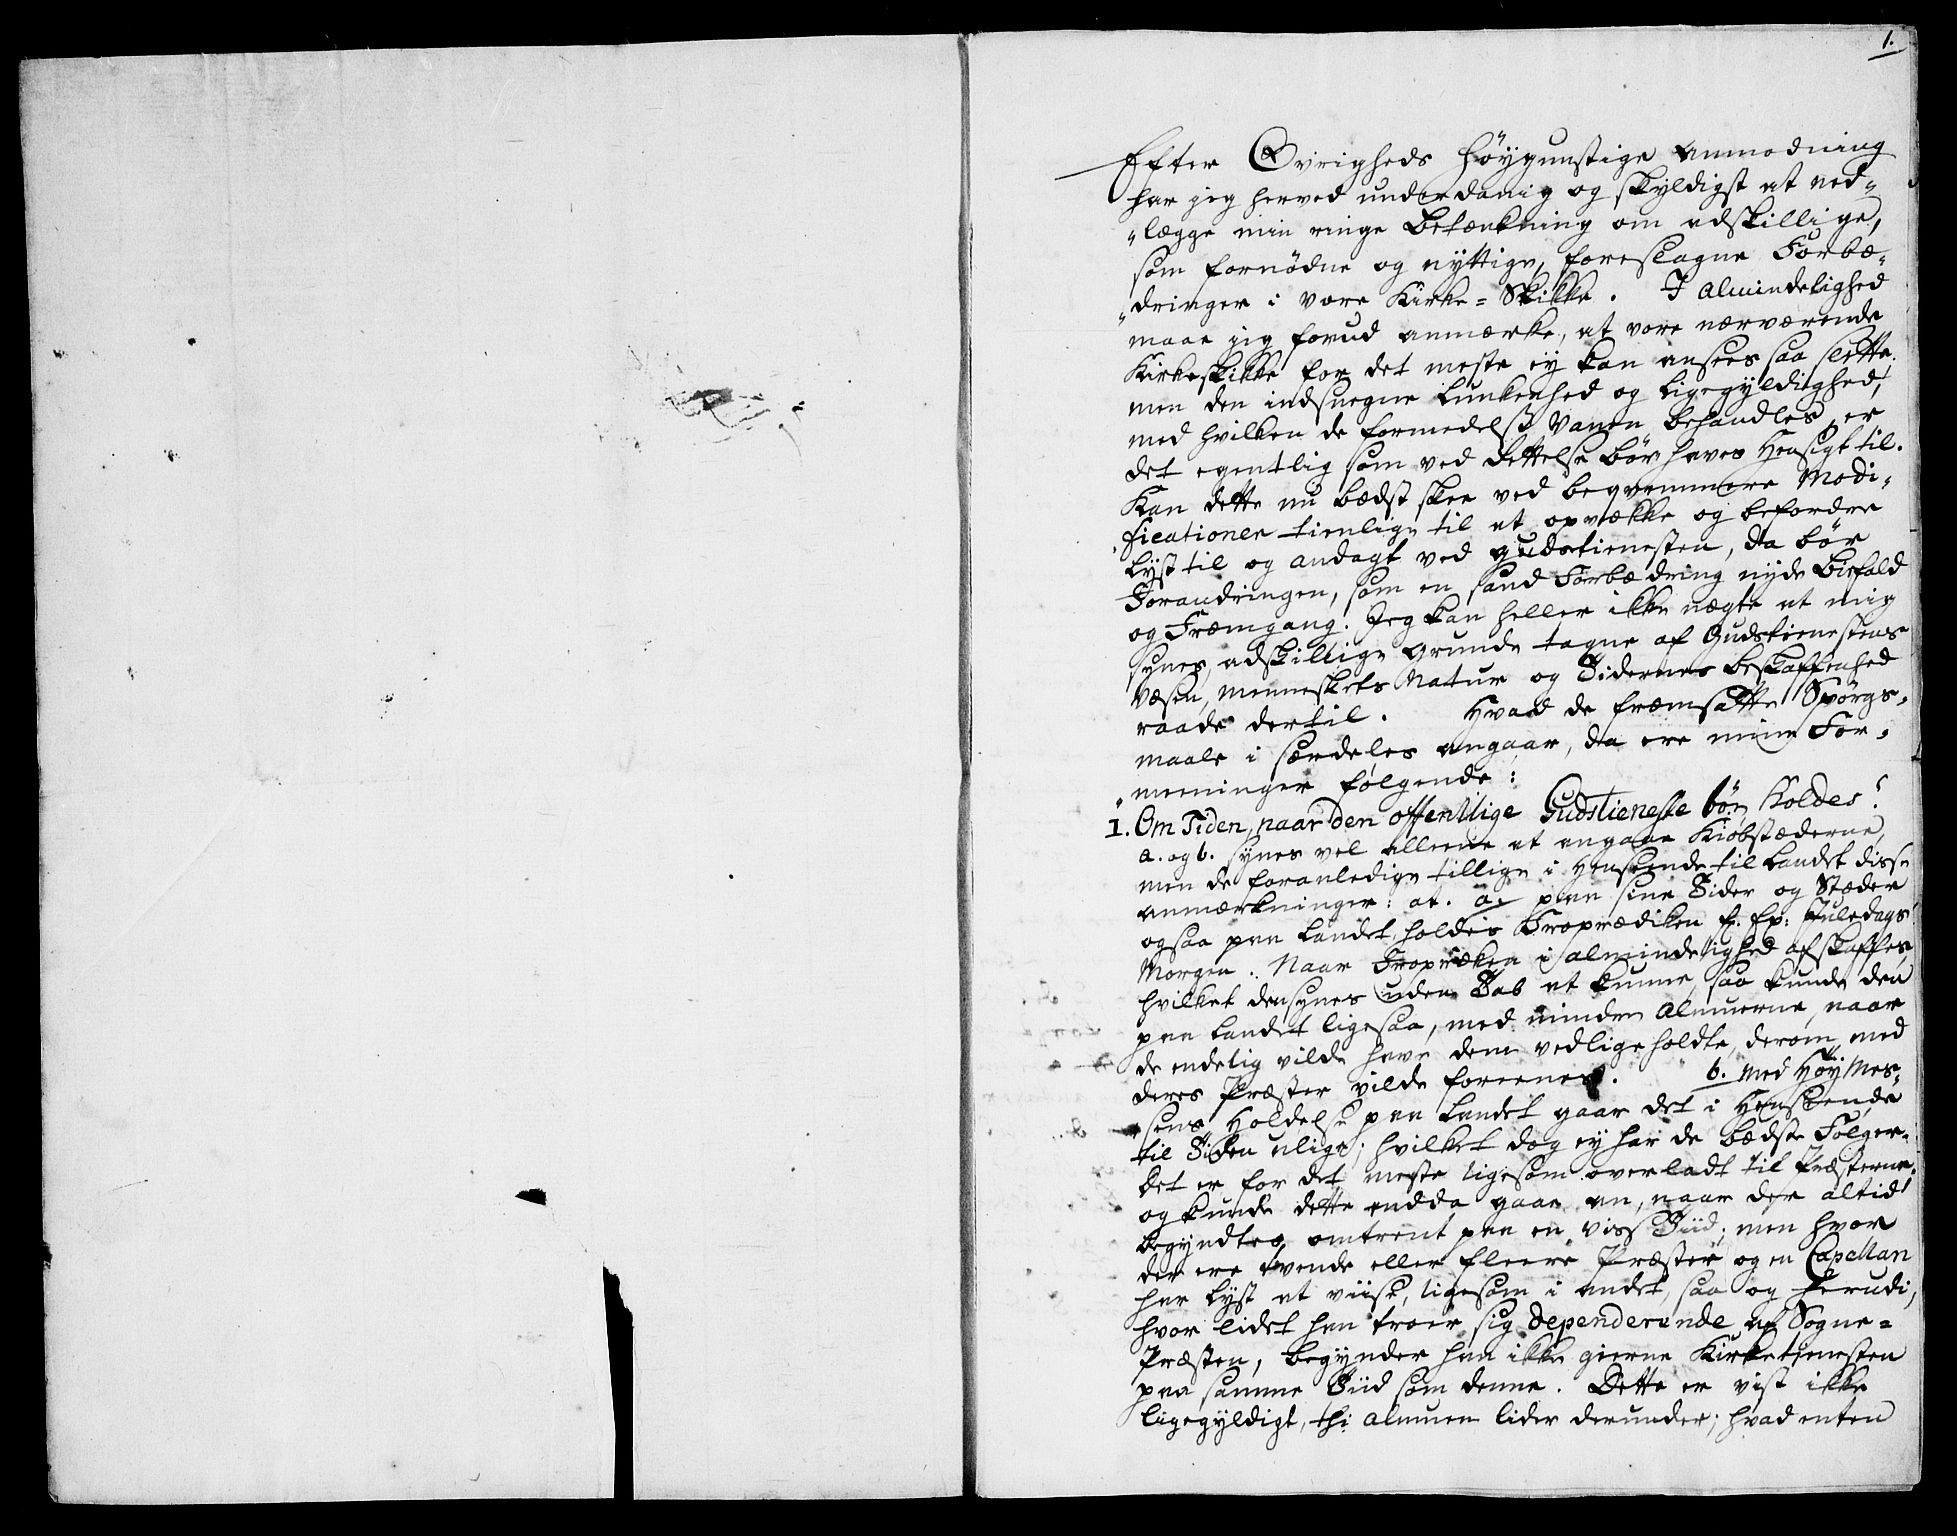 1.
Efter Øvrigheds høygunstige anmodning
har jeg herved underdanig og skyldigst at ned-
„lægge min ringe Betænkning om adskillige,
som fornødne og nyttige, foreslagne Forbæ-
„dringer i vore Kirke=Skikke. I Almindelighed
maae jeg forud anmærke, at vore nærværende
Kirkeskikke for det meste ey kan ansees saa slette;
men den indsnegne Lunkenhed og Ligegyldighed,
med hvilken de formedelst Vanen behandles, er
det egentlig som ved Rettelse bør haves Hensigt til.
Kan dette nu bædst skee ved beqvemmere Modi-
„ficationer tienlige til at opvække og befordre
Lyst til og andagt ved gudstienesten, da bør
Forandringen, som en sand Forbædring nyde Bifald
og Fremgang. Jeg kan heller ikke nægte at mig
synes, adskillige grunde tagne af Gudstienestens
Væsen, Menneskets Natur og Tidernes beskaffenhed
raade dertil. Hvad de fremsatte Spørgs-
maale i særdeles angaar, da ere mine For-
„meeninger følgende:
1. Om Tiden, naar den offentlige Gudstieneste bør holdes?
a. og b. synes vel alleene at angaae Kiøbstæderne,
men de foranledige tillige i Henseende til Landet disse
anmærkninger: at. a. paa sine Tider og Stæder
ogsaa paa Landet, holdes Froprædiken f. Ex: Juledags
Morgen. Naar Froprædken i almindelighed afskaffes,
hvilket den synes uden Tab at kunne, saa kunde den
paa Landet ligesaa, med mindre Almuerne, naar
de endelig vilde have dem vedligeholdte, derom med
deres Præster vilde foreenes. b. med Høy Mes-
„sens Holdelse paa Landet gaar det i Henseende
til Tiden ulige; hvilket dog ey har de bædste Følger.
Det er for det meste ligesom overladt til Præsterne,
og kunde dette endda gaae an, naar der altid
begyndtes omtrent paa en viss Tiid; men hvor
der ere tvende eller fleere Præster og en Capellan
har Lyst at viise, ligesom i andet, saa og herudi,
hvor lidet han troer sig dependerende af Sogne=
Præsten, begynder han ikke gierne Kirketienesten
paa samme Tiid som denne. Dette er vist ikke
ligegyldigt, thi Almuen lider derunder; hvad enten